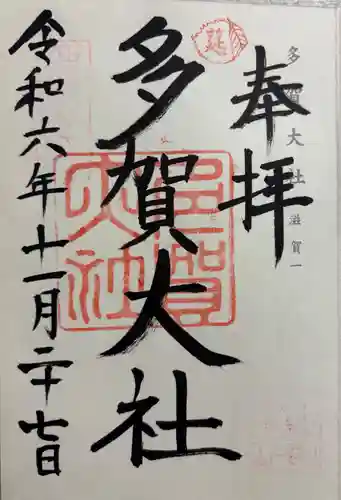 多賀大社 滋賀一
奉拝
多賀大社
令和六年十一月二十七日
多賀大社